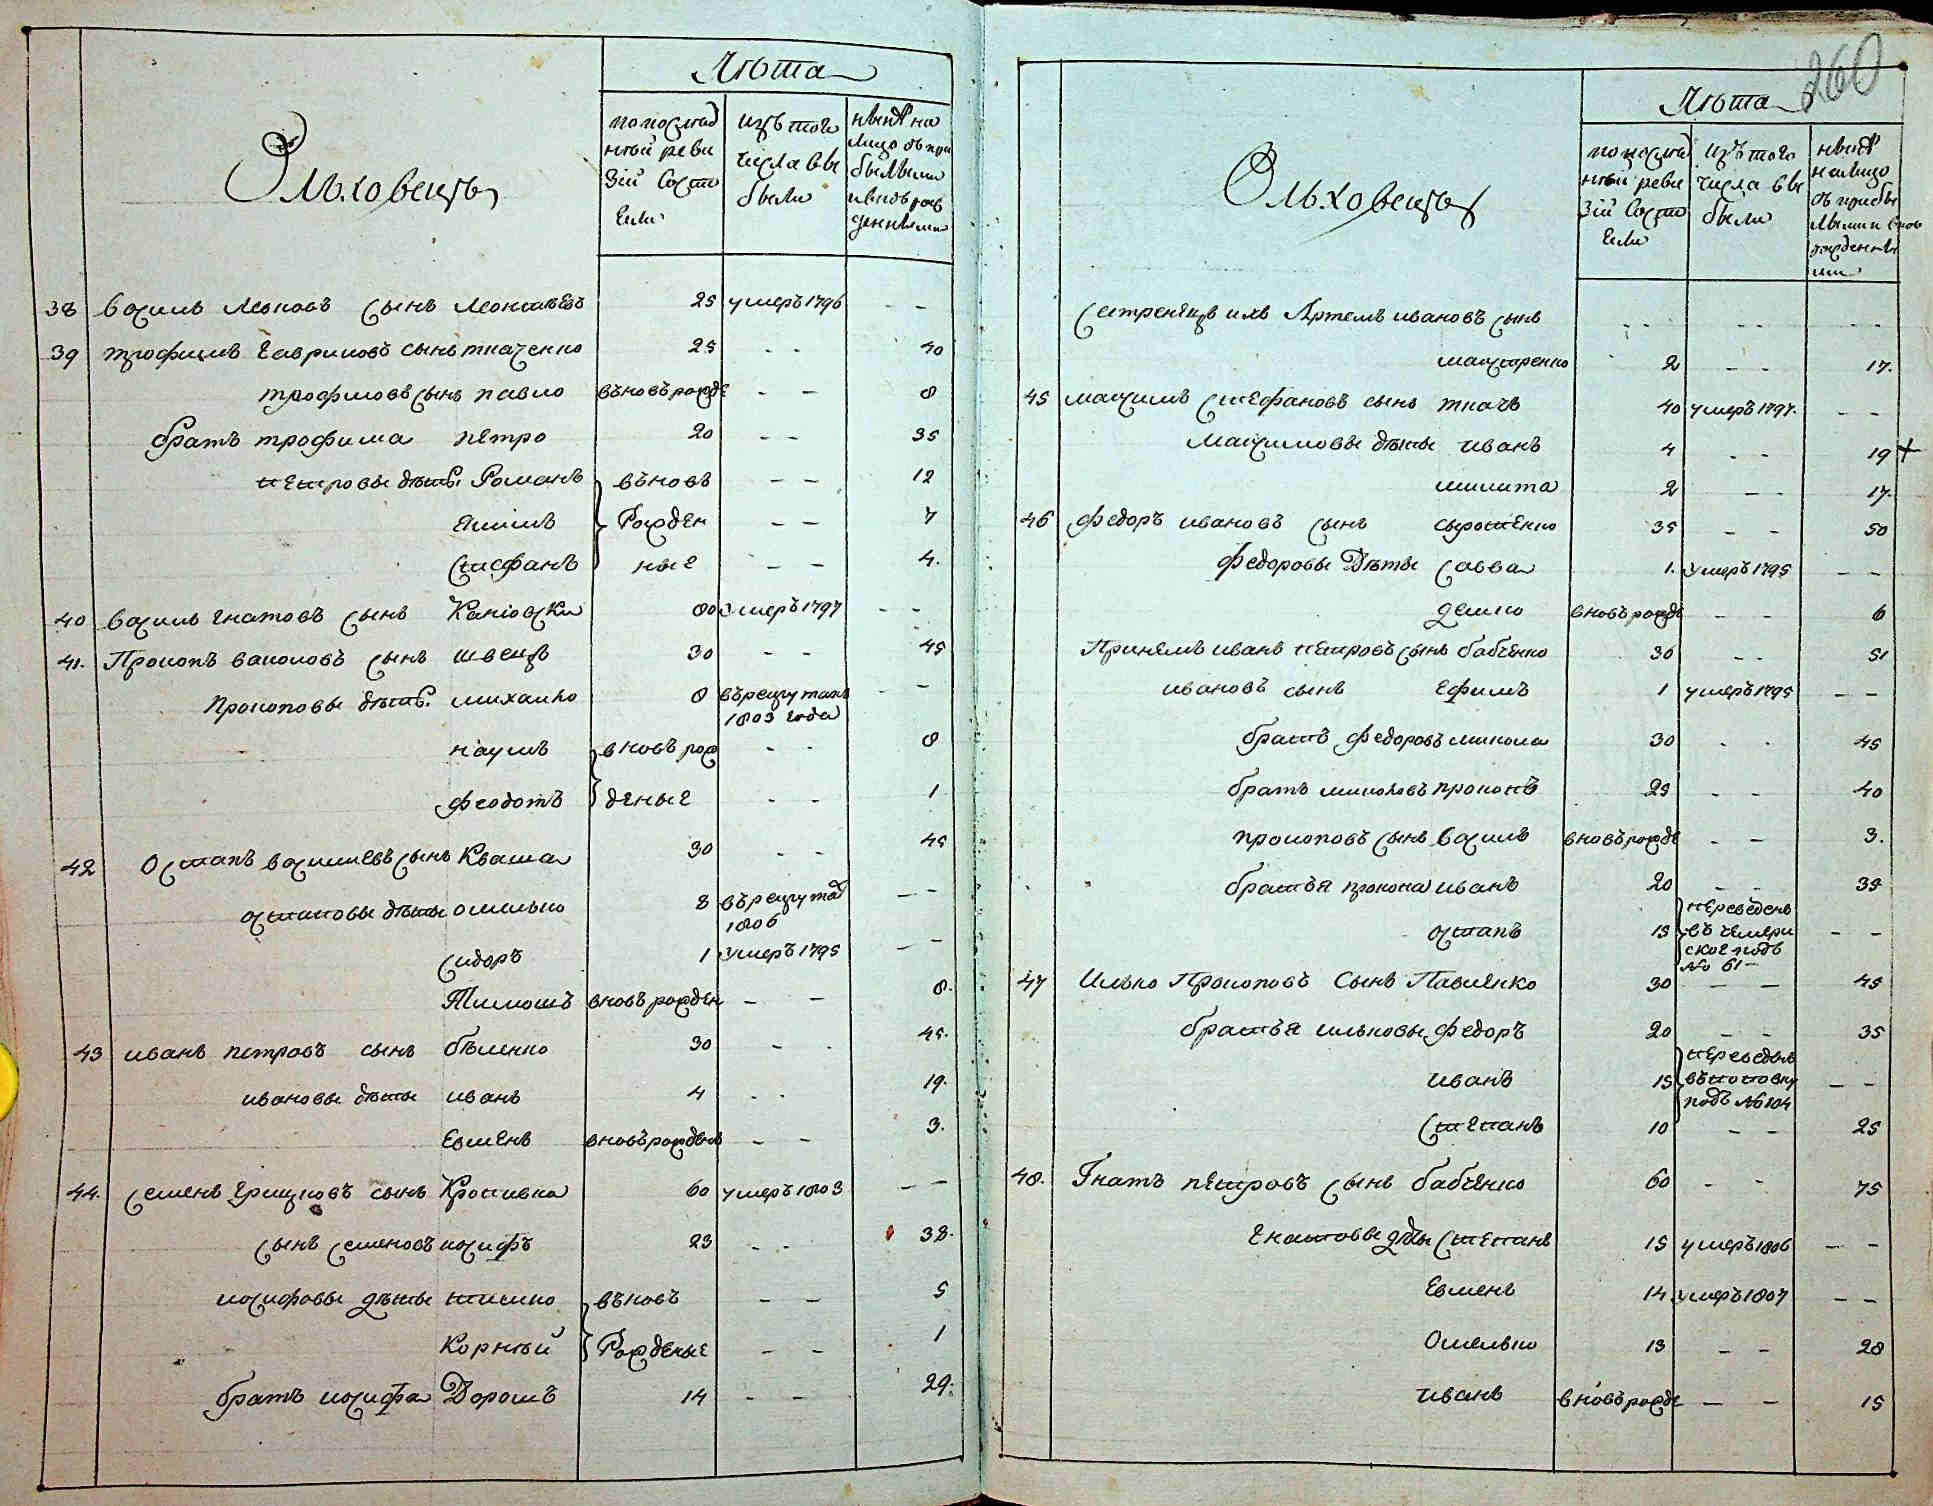 Лѣта
Ольховецъ
по послѣд
ней реви
зіи состо
яли
изъ того
числа вы
были
нынѣ на
лицо съ при
былыми
и вновь рож
денными
38 василь леоновъ сынъ леонтьевъ 25 умеръ 1796 - -
39 трофимъ гавриловъ сынъ ткаченко 25 - - 40
трофимовъ сынъ павло въновъ рожде - - 8
братъ трофима петро 20 - - 35
петровы дѣти Романъ въновъ - - 12
якимъ Рожден - - 7
стефанъ ные - - 4.
40 василь гнатовъ сынъ Каніовски 80 умеръ 1797 - -
41. Прокопъ сынъ швецъ 30 - - 45
прокоповы дѣти михайло 8 въ рекрутахъ - -
1803 года
наумъ вновъ рож - - 8
феодотъ деные - - 1
42 Остапъ василиевъ сынъ Кваша 30 - - 45
остаповы дѣти омелько 8 въ рекрута - -
1806
сидоръ 1 умеръ 1795 - -
Тимошъ вновъ рожден - - 8.
43 иванъ петровъ сынъ бѣленко 30 - - 45.
ивановы дѣти иванъ 4 - - 19.
Евменъ вновъ рожденъ - - 3.
44. семенъ сынъ Кропивка 60 умеръ 1803 - -
сынъ семеновъ иосифъ 23 - - 38.
иосифовы дѣти тишко въновъ - - 5
Корнѣй Рожденые - - 1
братъ иосифа Дорошъ 14 - - 29.
260
Лѣта
Ольховецъ
по послѣд
ней реви
зіи состо
яли
изъ того
числа вы
были
нынѣ
налицо
съ прибы
лыми и внов
рожденны
ми
сестренецъ ихъ Артемъ ивановъ сынъ - - - - - -
2 - - 17.
45 максимъ стефановъ сынъ ткачъ 40 умеръ 1797. - -
максимовы дѣти иванъ 4 - - 19 +
микита 2 - - 17.
46 федоръ ивановъ сынъ сыротенко 35 - - 50
федоровы Дѣти савва 1. умеръ 1795 - -
демко вновъ рожде - - 6
Принятъ иванъ петровъ сынъ бабченко 30 - - 51
ивановъ сынъ Ефимъ 1 умеръ 1795 - -
братъ федоровъ микола 30 - - 45
братъ миколовъ прокопъ 25 - - 40
прокоповъ сынъ василь вновъ рожде - - 3.
братья прокопа иванъ 20 - - 35
остапъ 15 переведенъ - -
въ чемери
ское подъ
№ 61 -
47 Илько Прокоповъ Сынъ Павленко 30 - - 45
братья ильковы федоръ 20 - - 35
иванъ 15 переведенъ - -
въ поповку
подъ №104
степанъ 10 - - 25
48. Гнатъ петровъ сынъ бабченко 60 - - 75
гнатовы дѣти степанъ 15 умеръ 1806 - -
Евменъ 14 умеръ 1807 - -
Омелько 13 - - 28
иванъ вновъ рожде - - 15